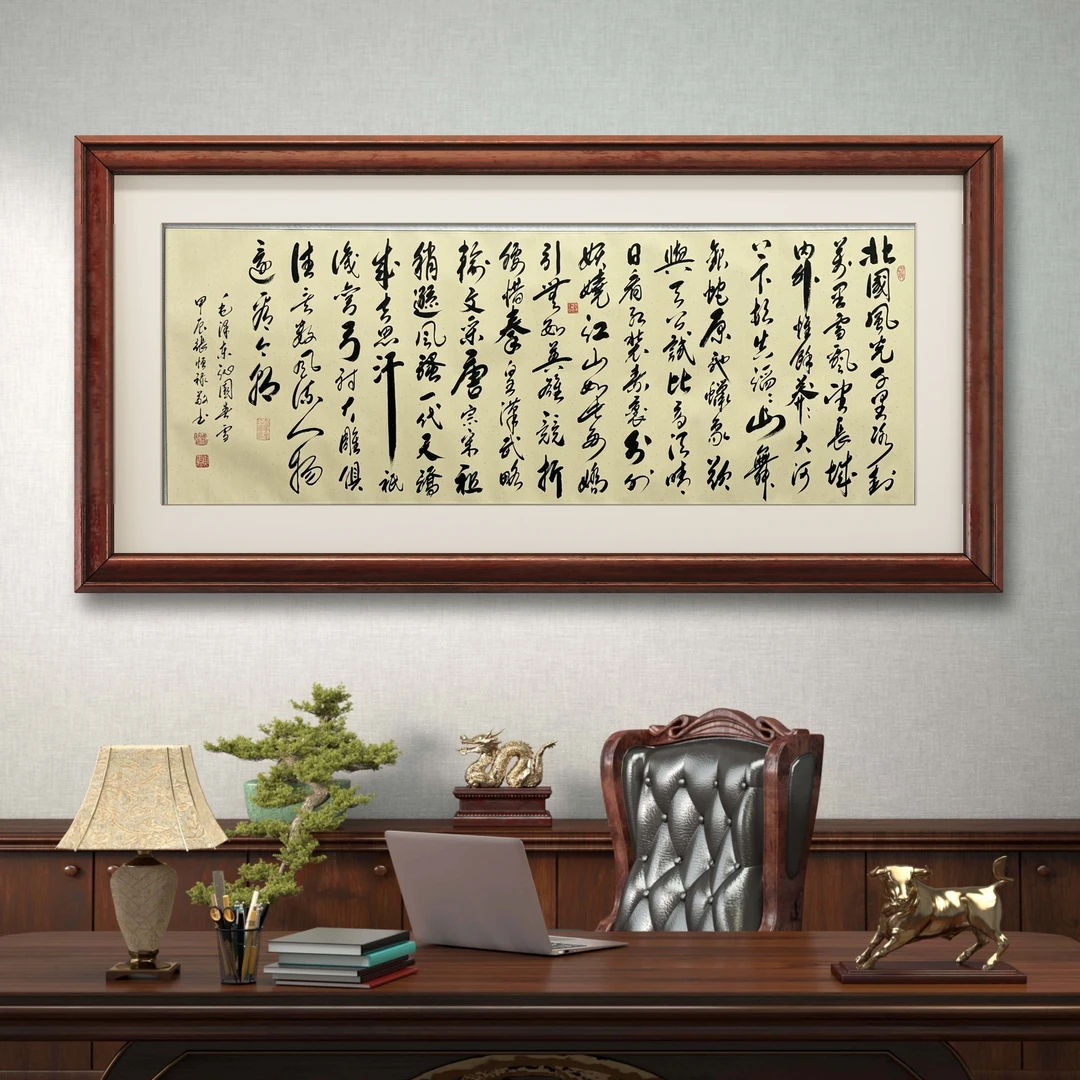 北國風光千里冰封
萬里雪飄望長城
内外惟餘莽〻大河
上下頓失滔〻山舞
銀蛇原馳蠟象欲
與天公試比高須晴
日看紅裝素裹分外
妖嬈江山如此多嬌
引無數英雄競折
腰惜秦皇漢武略
輸文采唐宗宋祖
稍遜風騷一代天驕
成吉思汗祇
識彎弓射大雕俱
往矣數風流人物
還看今朝
毛澤東沁園春雪
甲辰張恒祿敬书